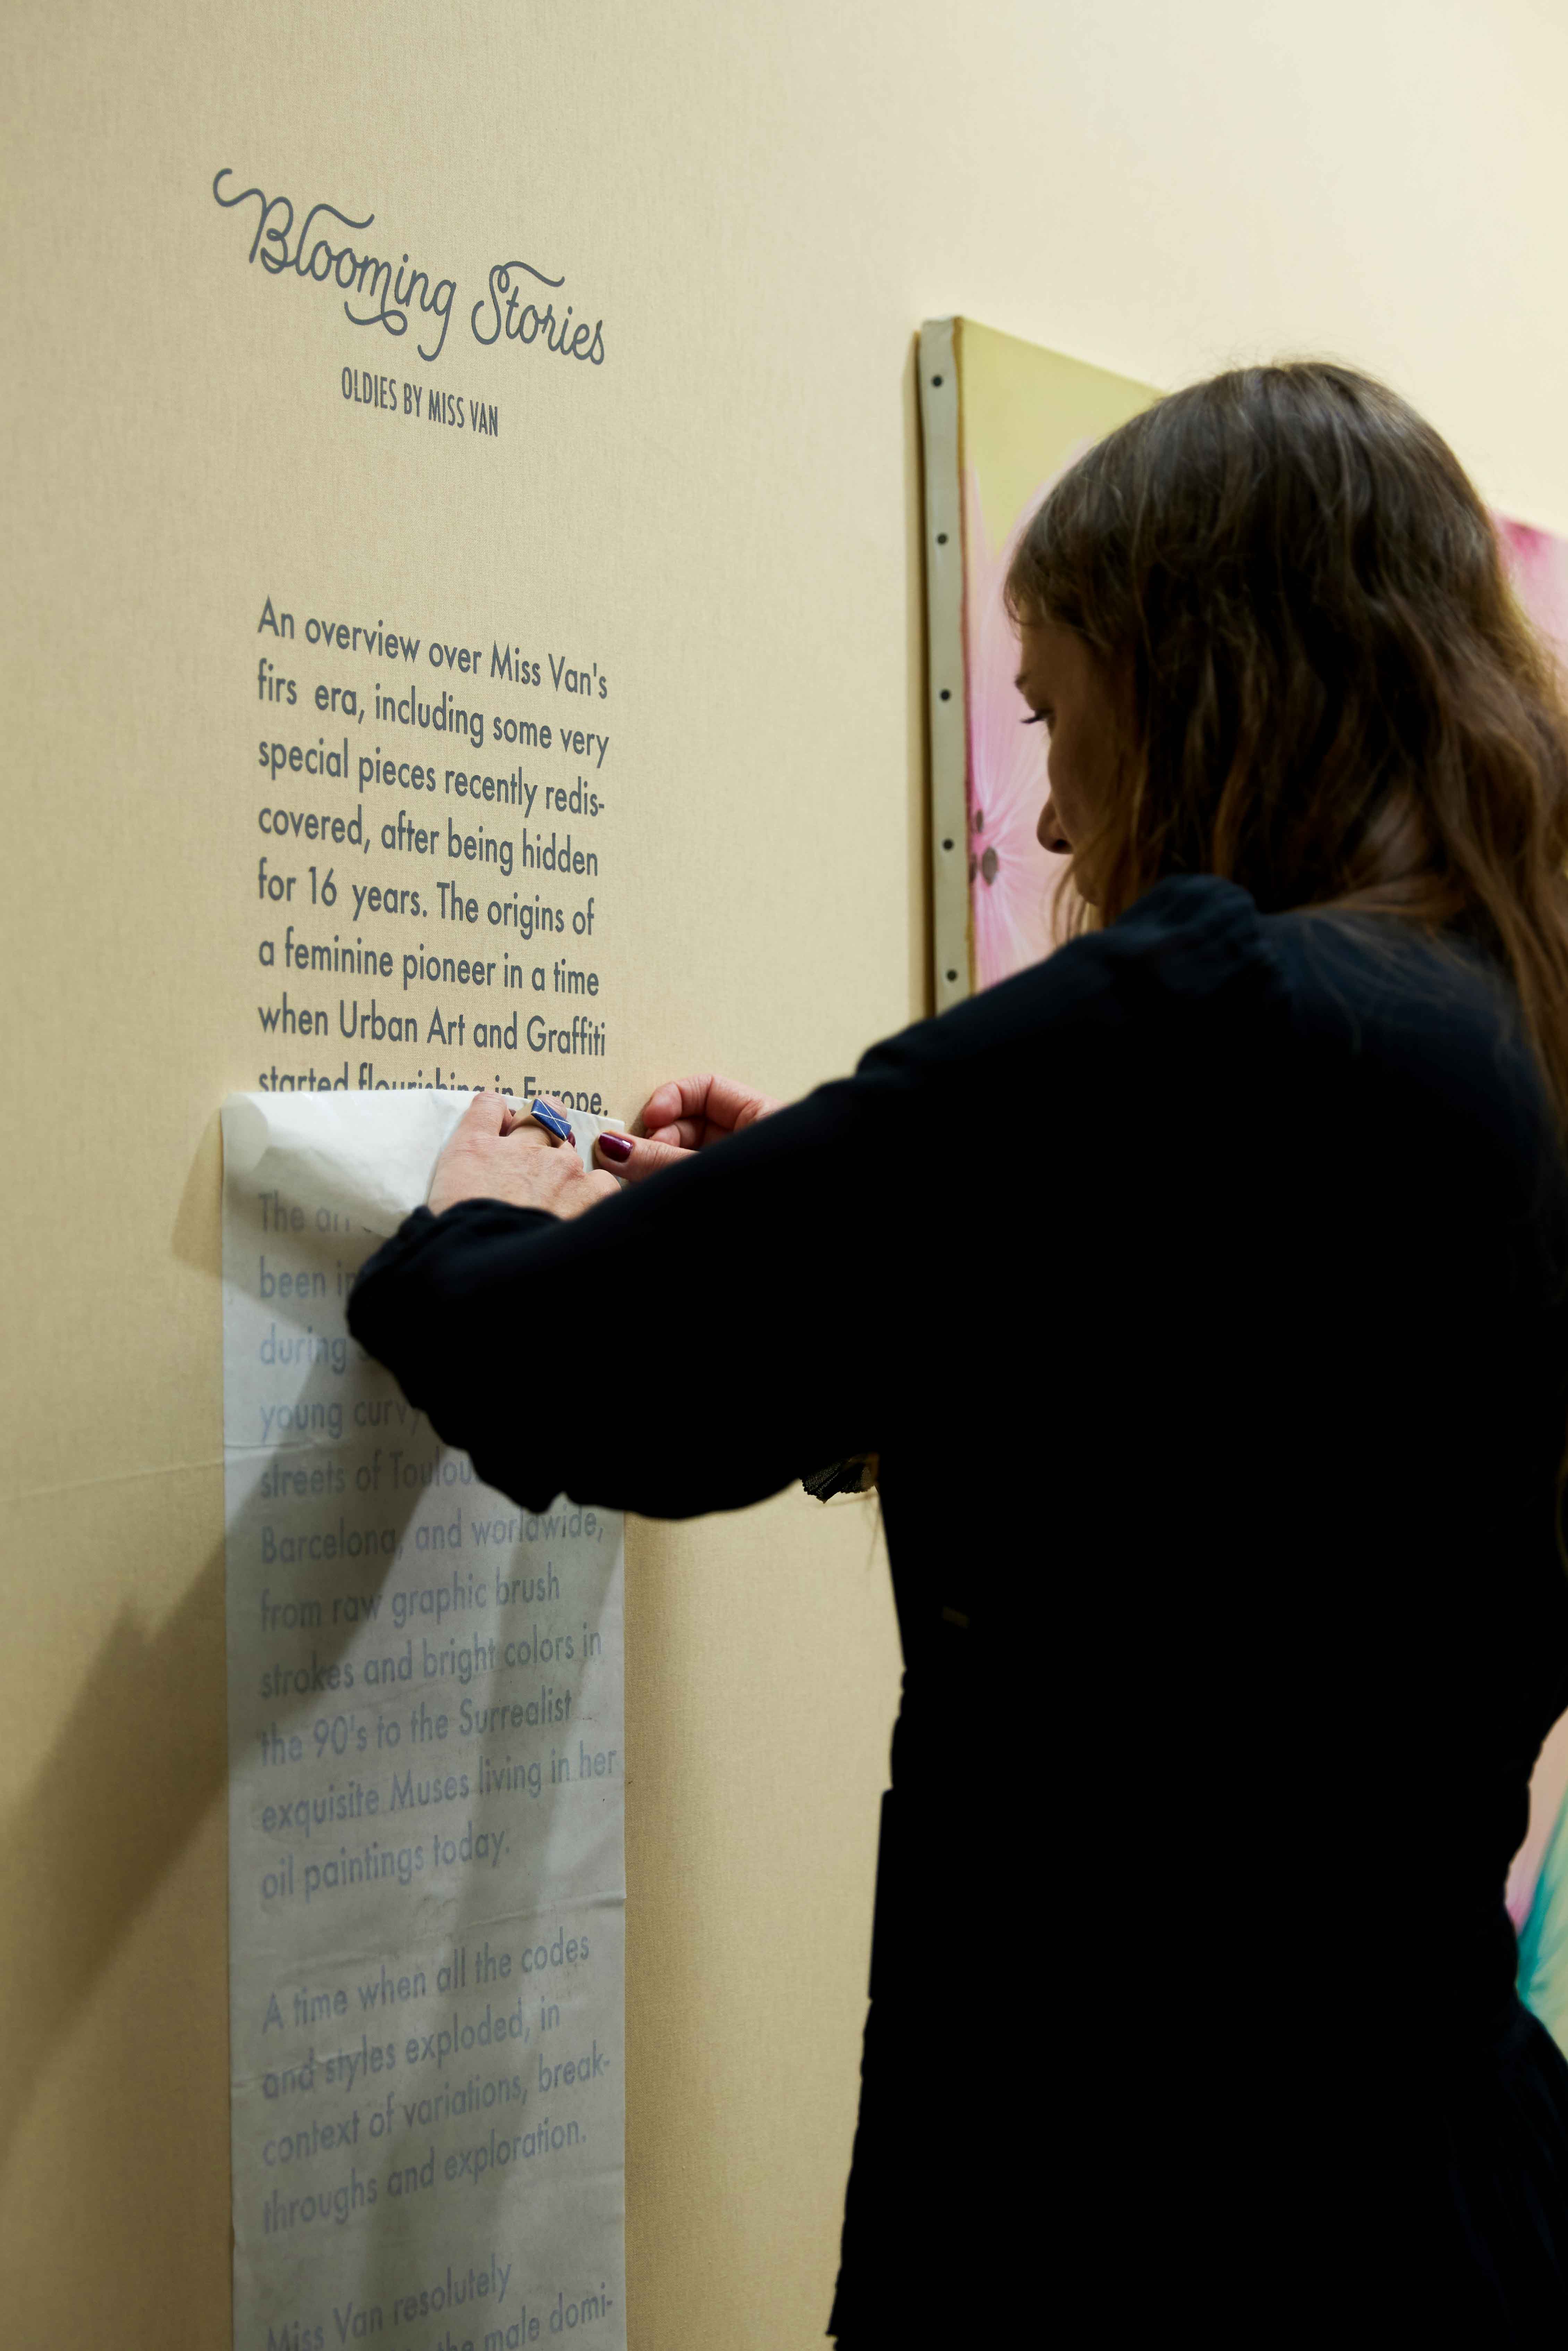 Blooming Stories
OLDIES BY MISS VAN
An overview over Miss Van's
firs era, including some very
special pieces recently redis-
covered, after being hidden
for 16 years. The origins of
a feminine pioneer in a time
when Urban Art and Graffiti
started flourishing in Europe.
The
been
during
young curvy
streets of
Barcelona, and worldwide,
from raw graphic brush
strokes and bright colors in
the 90's to the Surrealist
exquisite Muses living in her
oil paintings today.
A time when all the codes
and styles exploded, in
context of variations, break-
throughs and exploration.
Miss Van resolutely
the male domi-